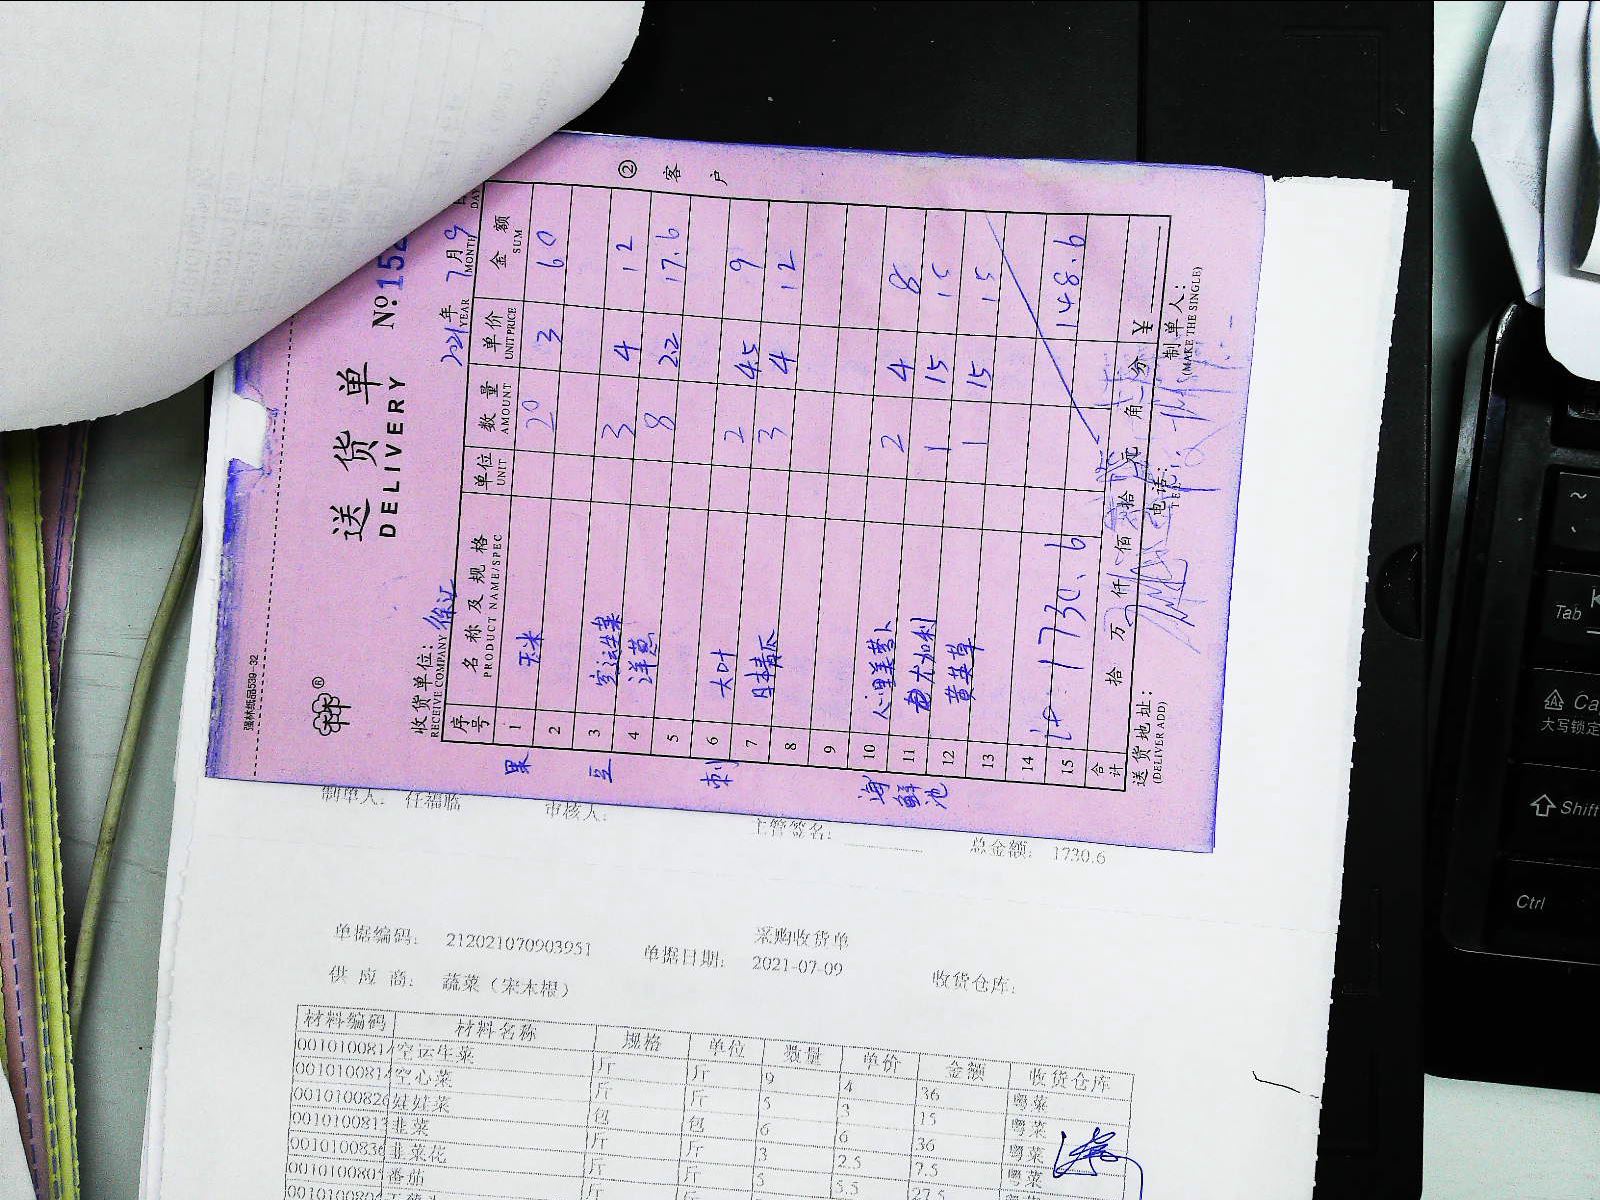 强林纸品539-32
送货单
DELIVERY
№:152
收货单位：徐记
RECEIVE COMPANY
2021年7月9日
YEAR MONTH DAY
②客户
序号 名称及规格 单位 数量 单价 金额
PRODUCT NAME/SPEC UNIT AMOUNT UNIT PRICE SUM
果 1 玉米 20 3 60
2
豆 3 空运生菜 3 4 12
4 洋葱 8 2.2 17.6
5
刺 6 大叶 2 4.5 9
7 青瓜 3 4 12
8
9
10 心里美萝卜 2 4 8
海鲜池 11 尤加利 1 15 15
12 黄英草 1 15 15
13
14 148.6
15 1730.6
合计 拾 万 仟 佰 拾 元 角 分 ¥
送货地址：
(DELIVER ADD)
电话：
TEL
制单人：
(MAKE THE SINGLE)
制单人： 任福临 审核人： 主管签名： 总金额： 1730.6
采购收货单
单据编码： 212021070903951 单据日期： 2021-07-09 收货仓库：
供应商： 蔬菜（宋本根）
材料编码 材料名称 规格 单位 数量 单价 金额 收货仓库
空运生菜 斤 斤 9 4 36 粤菜
空心菜 斤 斤 5 3 15 粤菜
娃娃菜 包 包 6 6 36 粤菜
韭菜 斤 斤 3 2.5 7.5 粤菜
韭菜花 斤 斤 5 5.5 27.5
番茄 斤
~
Tab
Ca
大写锁定
Shift
Ctrl